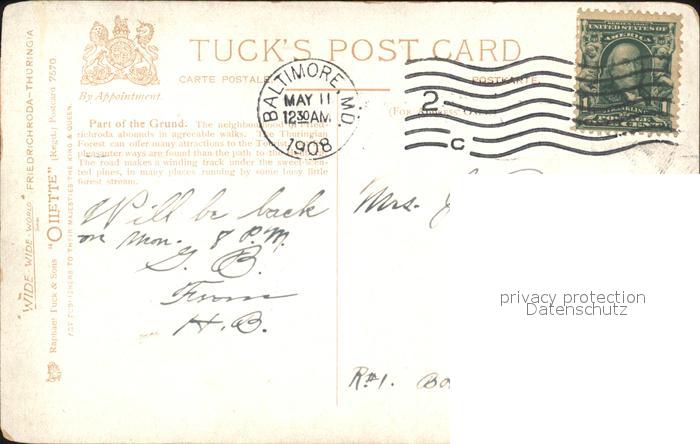 TUCK'S POST CARD
CARTE POSTALE
POSTKARTE
By Appointment.
(For Address Only)
BALTIMORE, MD.
MAY 11
12 30 AM
1908
2
C
SERIES 1902
UNITED STATES OF
AMERICA
1
1
FRANKLIN
POSTAGE
Part of the Grund. The neighbourhood of Fried-
richroda abounds in agreeable walks. The Thuringian
Forest can offer many attractions to the Tourist, but no
pleasanter ways are found than the path to the
The road makes a winding track under the sweet-scent-
ed pines, in many places running by some busy little
forest stream.
"WIDE-WIDE-WORLD" FRIEDRICHRODA-THURINGIA
Raphael Tuck & Sons "OILETTE" (Regd.) Postcard 7570
ART PUBLISHERS TO THEIR MAJESTIES THE KING & QUEEN.
Will be back
on Mon. 8 P.M.
G. B.
From
H.B.
Mrs. J
R#1. Bo
privacy protection
Datenschutz